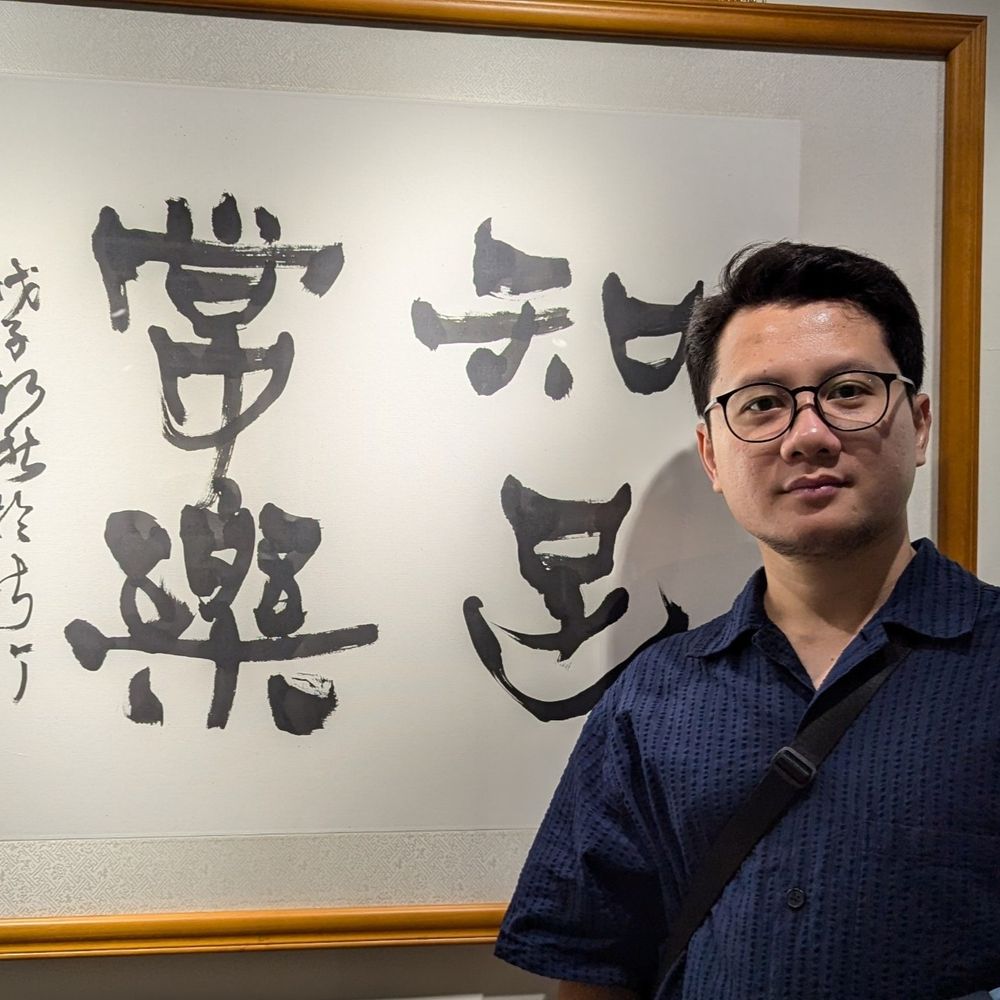 知足
常樂
戊子初秋於